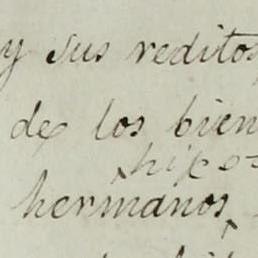 y sus reditos
de los bien
hijos
hermanos